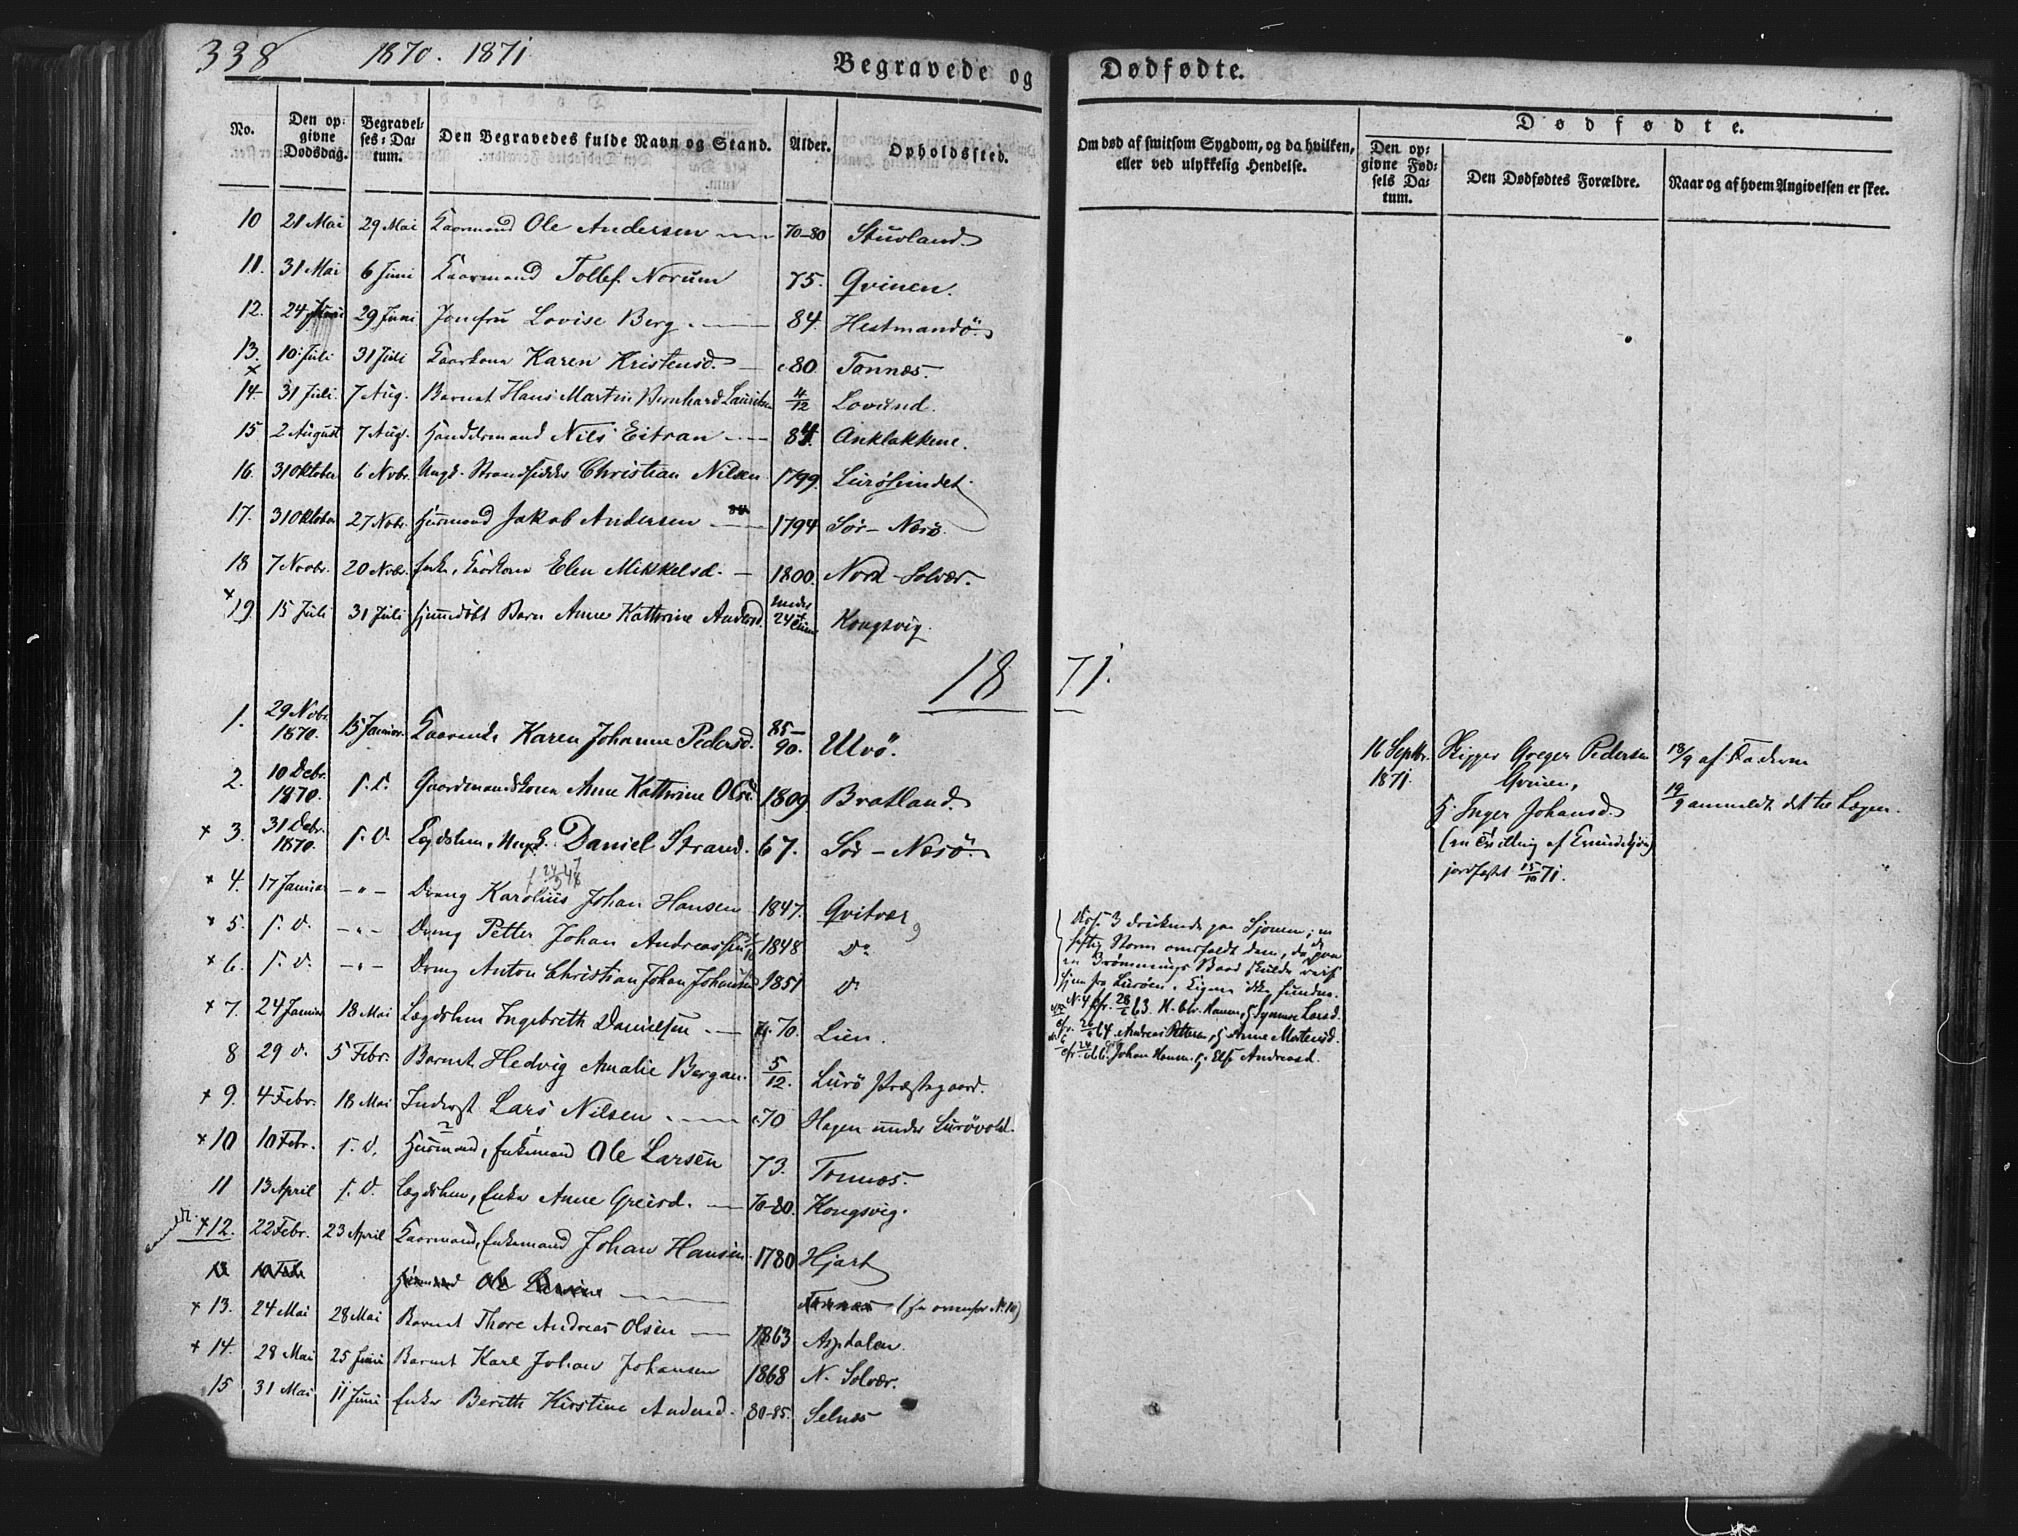 338 1870. 1871. Begravede og Dødfødte.
No. Den opgivne Dødsdag. Begravelses-Datum. Den Begravedes fulde Navn og Stand. Alder. Opholdssted.
Om død af smitsom Sygdom, og da hvilken, eller ved ulykkelig Hendelse.
Dødfødte.
Den opgivne Fødsels Datum. Den Dødfødtes Forældre. Naar og af hvem Angivelsen er skeet.
10 21 Mai 29 Mai Gaarmand Ole Andersen 70-80 Stuvland
11. 31 Mai 6 Juni Gaarmand Tollef Norum 75. Qvinen.
12. 24 Juni 29 Juni Jomfru Lovise Berg 84. Hestmandö.
13. 10 Juli 31 Juli Gaarkone Karen Kristensd. c80. Tonnæs.
x
14 31 Juli. 7 Aug. Barnet Hans Martin Bernhard Lauritsen 4/12 Lovund.
15 2 August 7 Aug. Handelsmand Nils Eitran 84. Anklakkene.
16. 31 Oktober 6 Novbr. Ungk. Strandsidder Christian Nilsen 1799. Luröleindet.
17. 31 Oktober 27 Novbr. Husmand Jakob Andersen 1794 Sör-Nesö.
18 7 Novbr. 20 Novbr. Enke, Elen Mikkelsd. 1800. Nord-Solvær.
x
19. 15 Juli 31 Juli hjemmedöbt Barn Anne Kathrine Andersd. under 24 Timer Kongsvig.
1871.
1. 29 Nvbr. 1870. 15 Januar. Gaarenke Karen Johanne Pedersd. 85-90. Ulvö.
2. 10 Debr. 1870. s. D. Gaardmandskone Anne Kathrine Olsd. 1809 Bratland.
x 3. 31 Debr. 1870. s. D. Lægdslem, Ungk. Daniel Strand. 67. Sör-Nesö.
x 4. 17 Januar -"- Dreng Karolius Johan Hansen 1847. Qvitvær
x 5. s. D. -"- Dreng Petter Johan Andreassen 1848 Do
x 6. s. D. -"- Dreng Anton Christian Johan Johansen 1851 Do
x 7. 24 Januar 18 Mai Lægdslem Ingebreth Danielsen 70. Lien.
8 29 D. 5 Febr. Barnet Hedvig Amalie Bergan. 5/12. Lurö Præstegaard.
x 9. 4 Febr. 18 Mai Inderst Lars Nilsen c70 Hagen under Lurövold.
x 10 10 Febr. s. D. Husmand, Enkemand Ole Larsen 73. Tonnæs.
11 13 April s. D. Lægdslem, Enke Anne Greisd. 70-80. Kongsvig.
x 12. 22 Febr. 23 April Gaarmand, Enkemand Johan Hansen. 1780 Hjart
13 10 Febr Husmand Ole Larsen Tonnæs (se ovenfor No. 10)
x 13. 24 Mai 28 Mai Barnet Thore Andreas Olsen 1863 Aspdalen.
x 14. 28 Mai 25 Juni Barnet Karl Johan Johansen 1868 N. Solvær.
15 31 Mai 11 Juni Enke Berith Kirstine Andersd. 80-85. Selnæs
Disse 3 druknede paa Sjöen; en
heftig Storm overfaldt dem, da de paa
en Brönnings Baad skulde reise
hjem fra Luröen. Ligene ikke fundne.
No. 4 cfr. 28/6 63. H. Chr. Hansen, Larsd.
cfr. 26/6 64 Andreas Pettersen, & Anne Mortensd.
cfr. 24/6 66. Johan Hansen & Else Andreasd.
16 Septbr. 1871.
Skipper Greger Pedersen
Qvinen,
H. Inger Johansd.
(en Tvilling af Qvindekjön)
jordfæstet 15/10 71.
18/9 af Faderen
19/9 anmeldt det til Lægen.